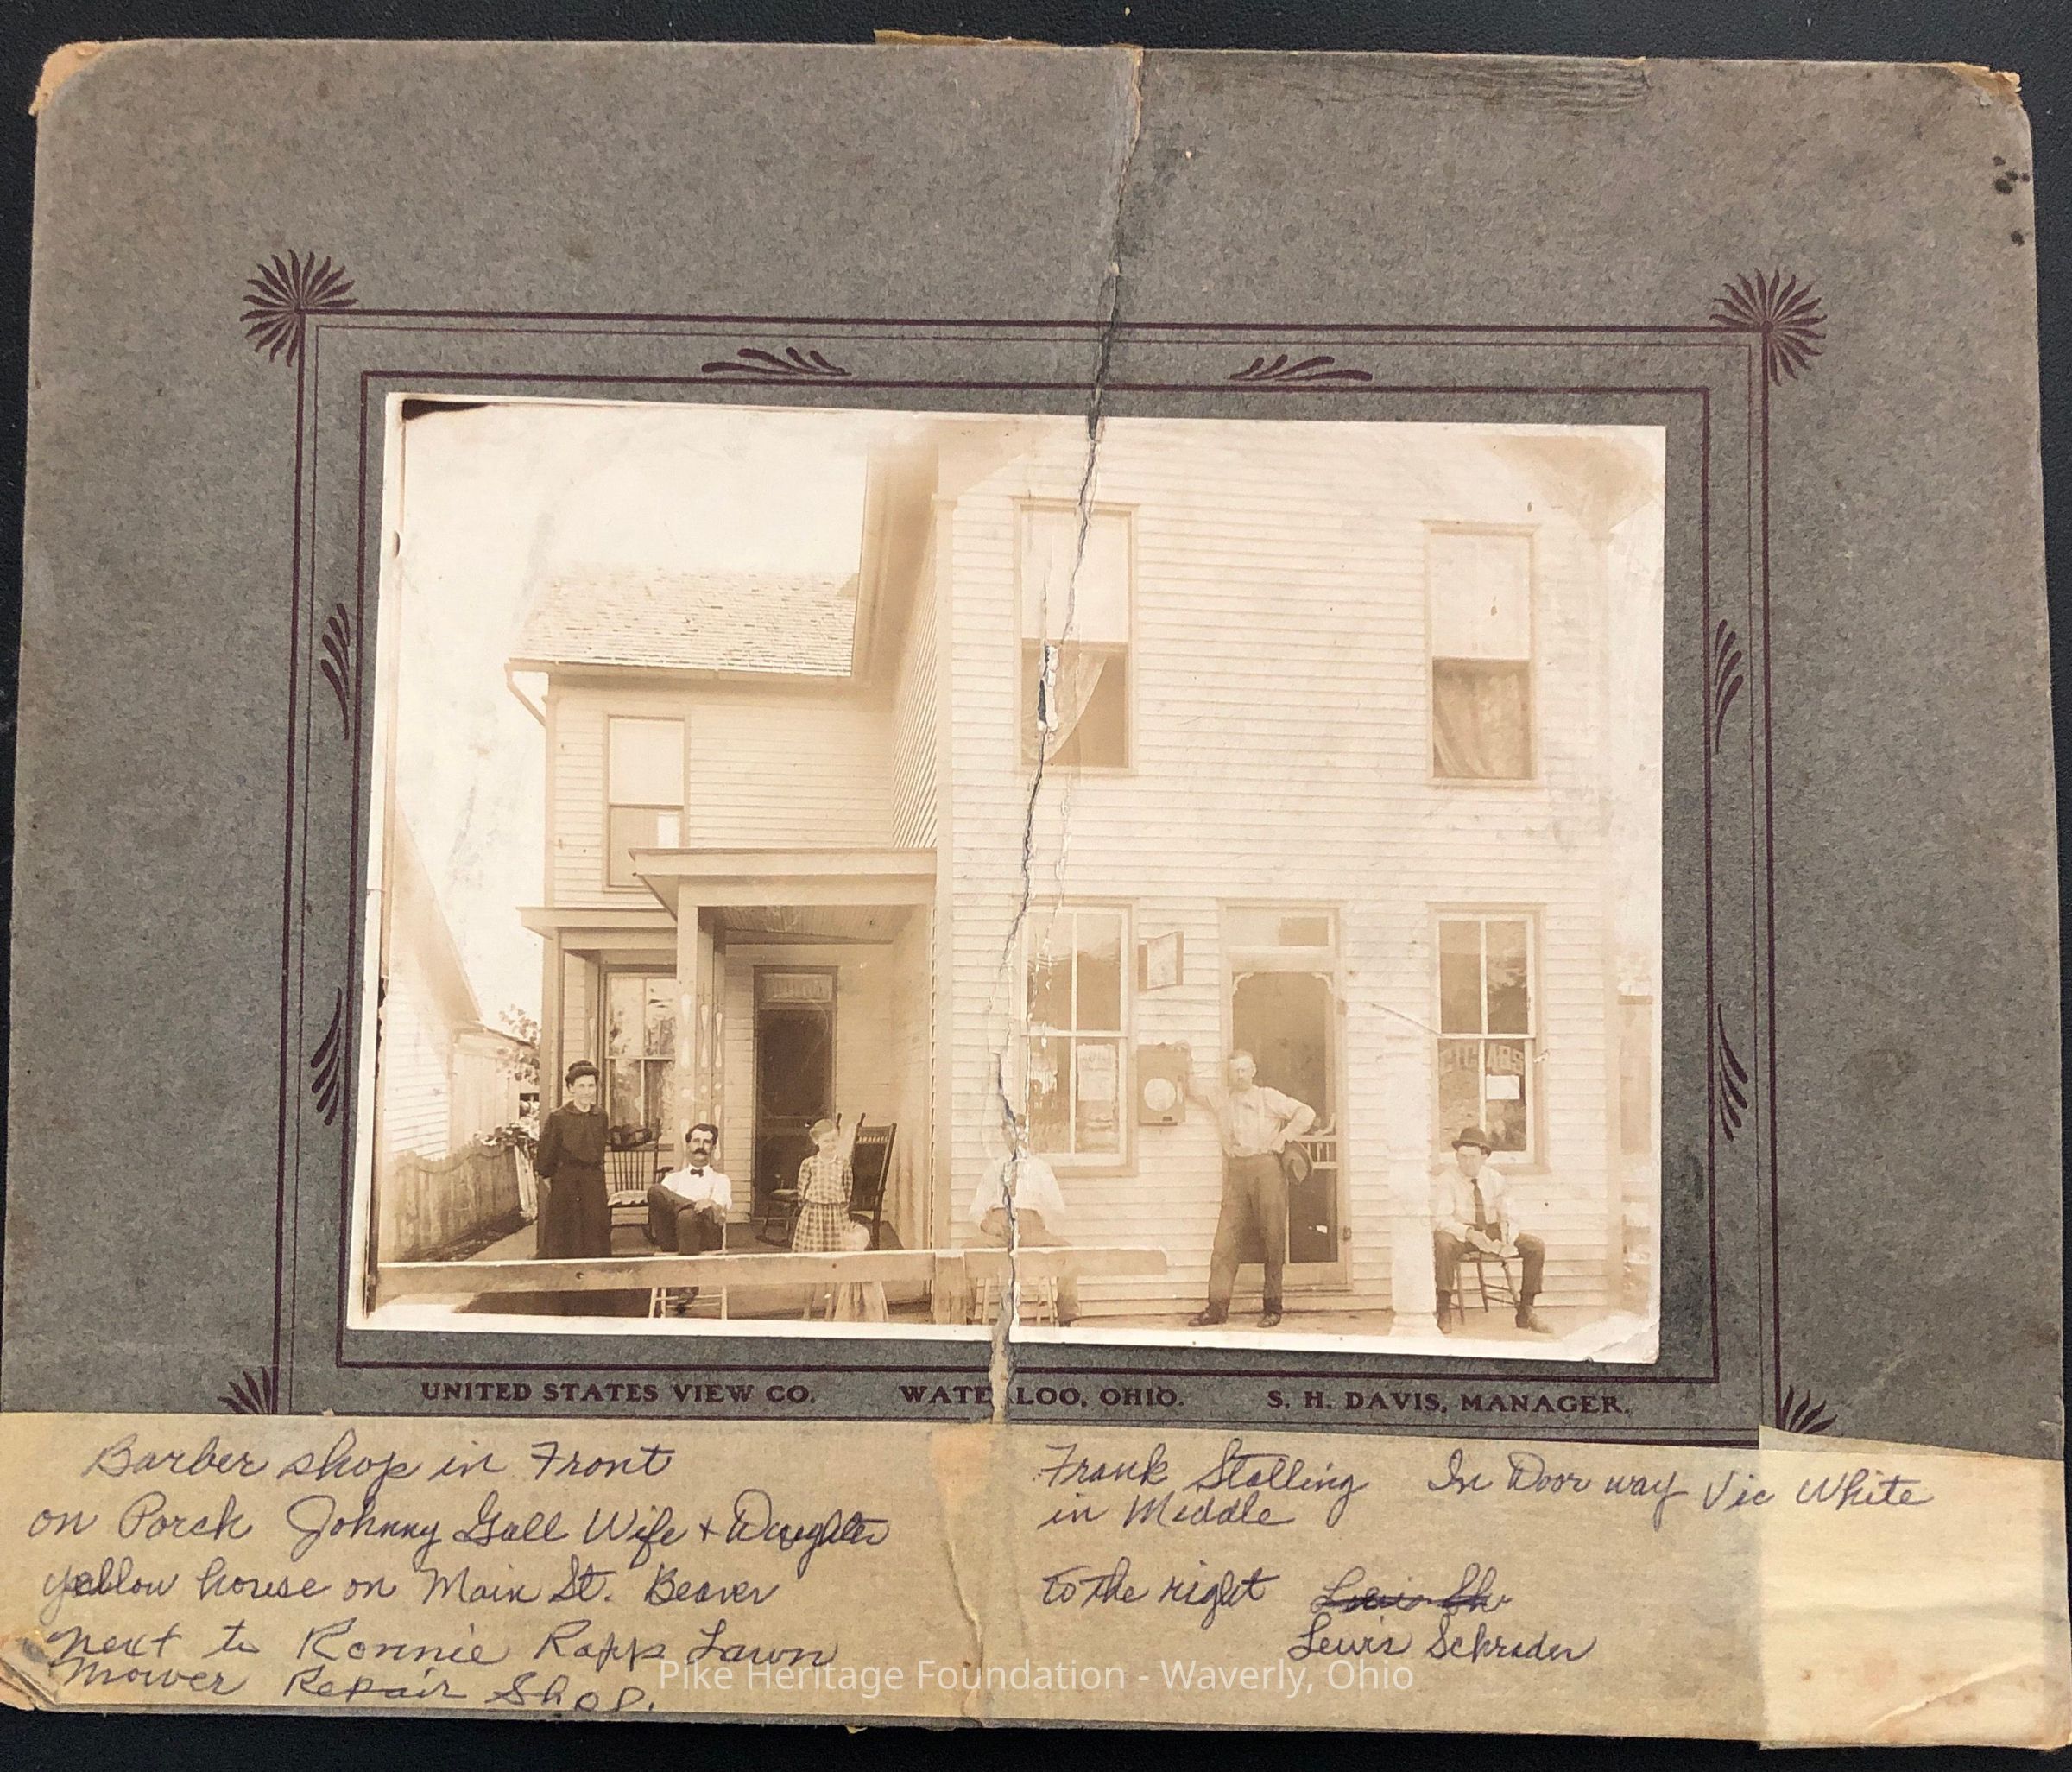 CIGARS
UNITED STATES VIEW CO. WATERLOO, OHIO. S. H. DAVIS, MANAGER.
Barber shop in Front
on Porch Johnny Gall Wife + Daughter
yellow house on Main St. Beaver
next to Ronnie Rapp Lawn
Mower Repair Shop.
Frank Stalling In Door way Vic White
in Middle
to the right
Lewis Schrader
Pike Heritage Foundation - Waverly, Ohio